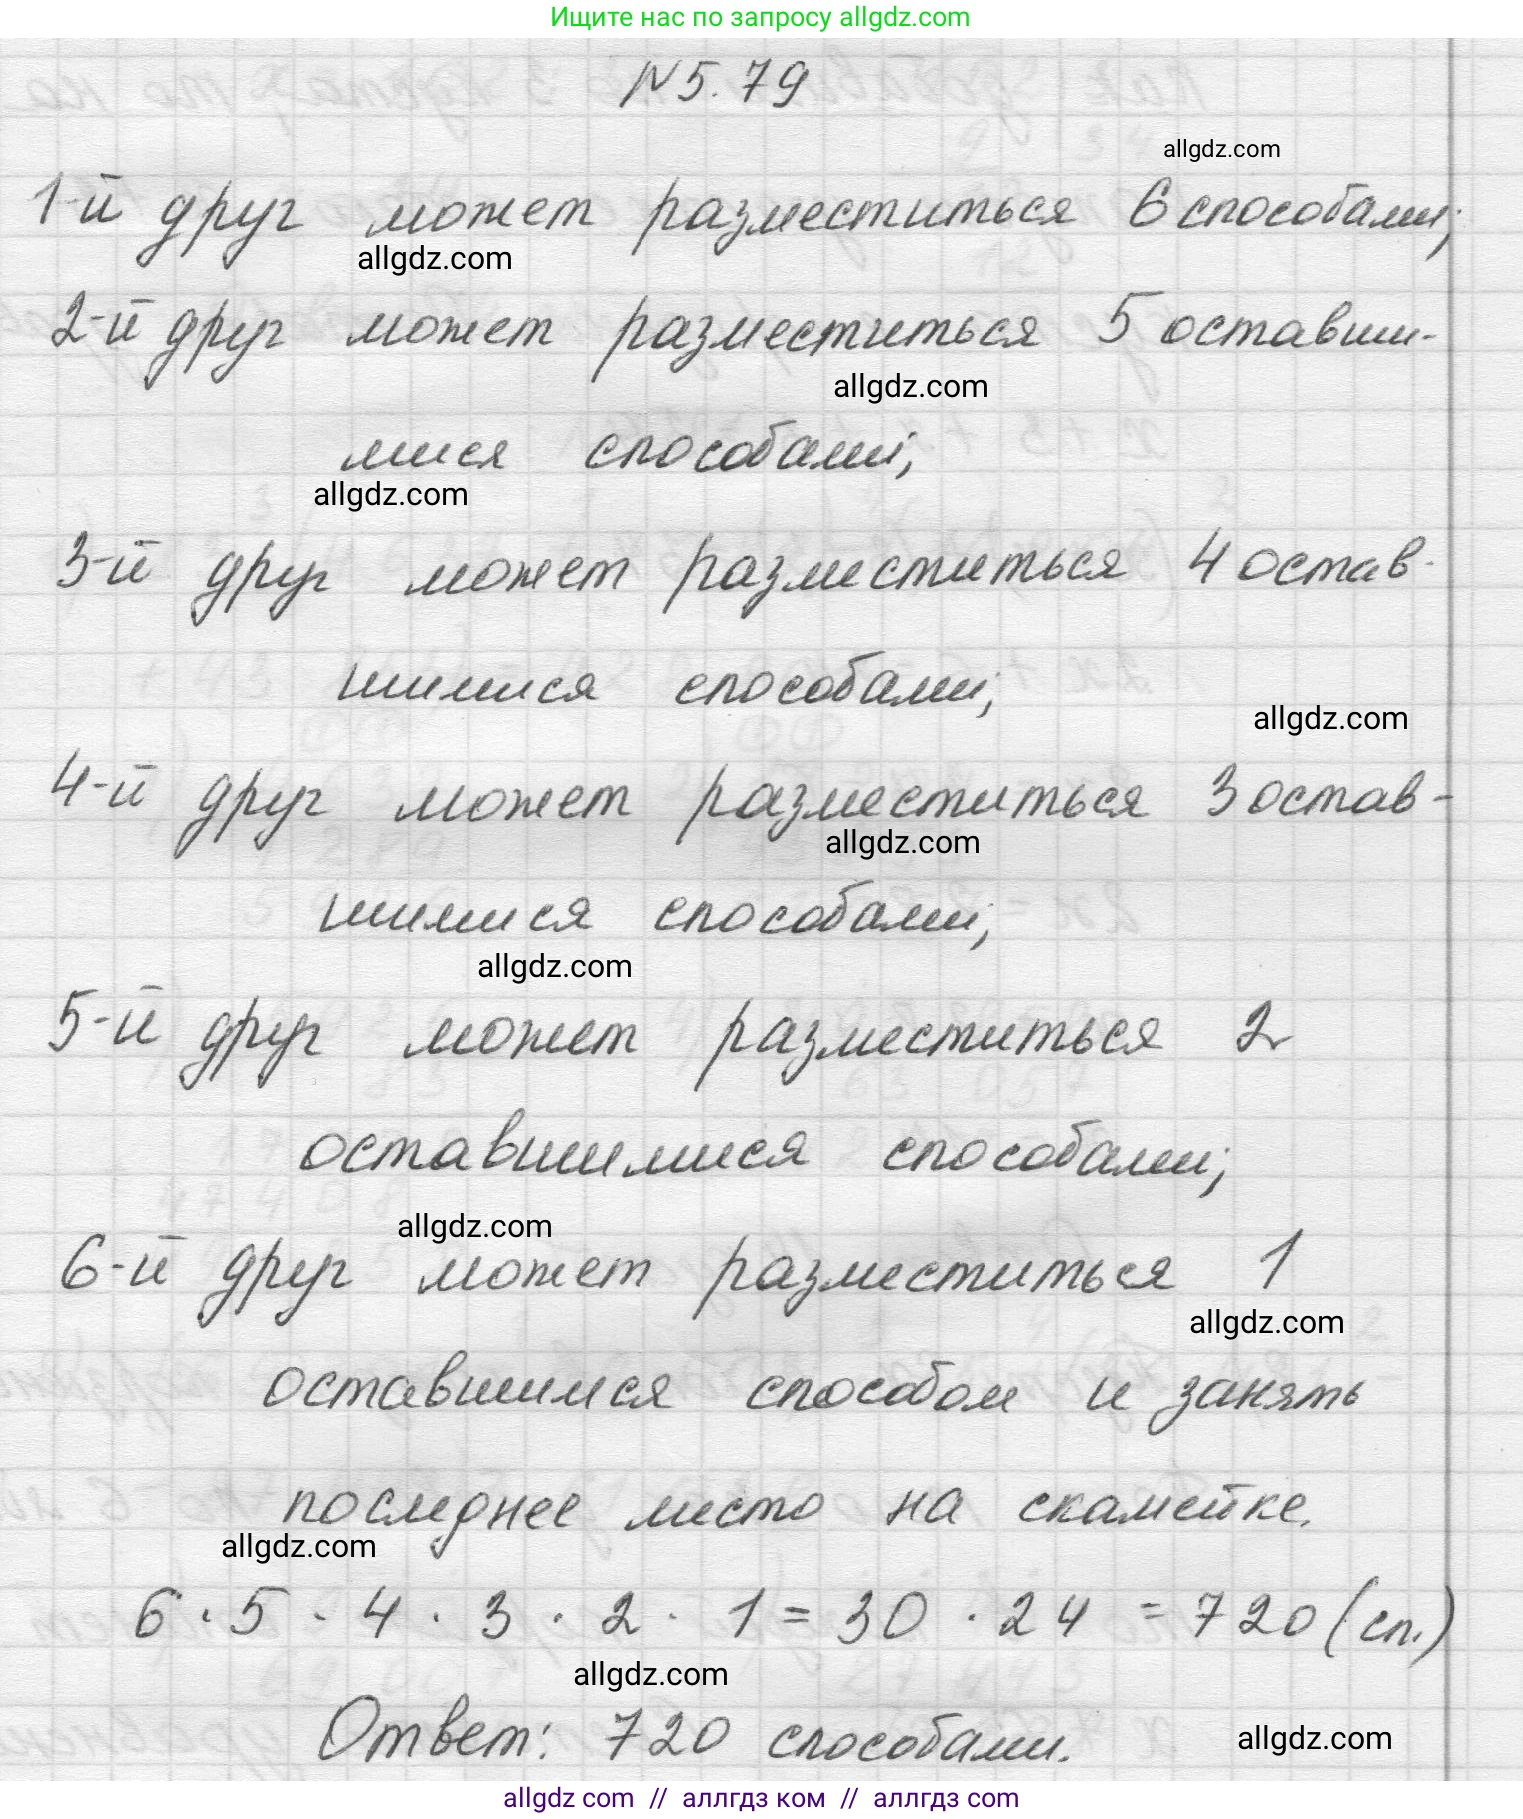 Ищите нас по запросу allgdz.com
№5.79
allgdz.com
1-й друг может разместиться 6 способами;
allgdz.com
2-й друг может разместиться 5 оставши-
allgdz.com
мися способами;
allgdz.com
3-й друг может разместиться 4 остав-
шимися способами;
allgdz.com
4-й друг может разместиться 3 остав-
allgdz.com
шимися способами;
allgdz.com
5-й друг может разместиться 2
оставшимися способами;
allgdz.com
6-й друг может разместиться 1
allgdz.com
оставшимся способом и занять
последнее место на скамейке.
allgdz.com
6 · 5 · 4 · 3 · 2 · 1 = 30 · 24 = 720 (сп.)
allgdz.com
Ответ: 720 способами.
allgdz.com
allgdz.com // аллгдз ком // аллгдз com